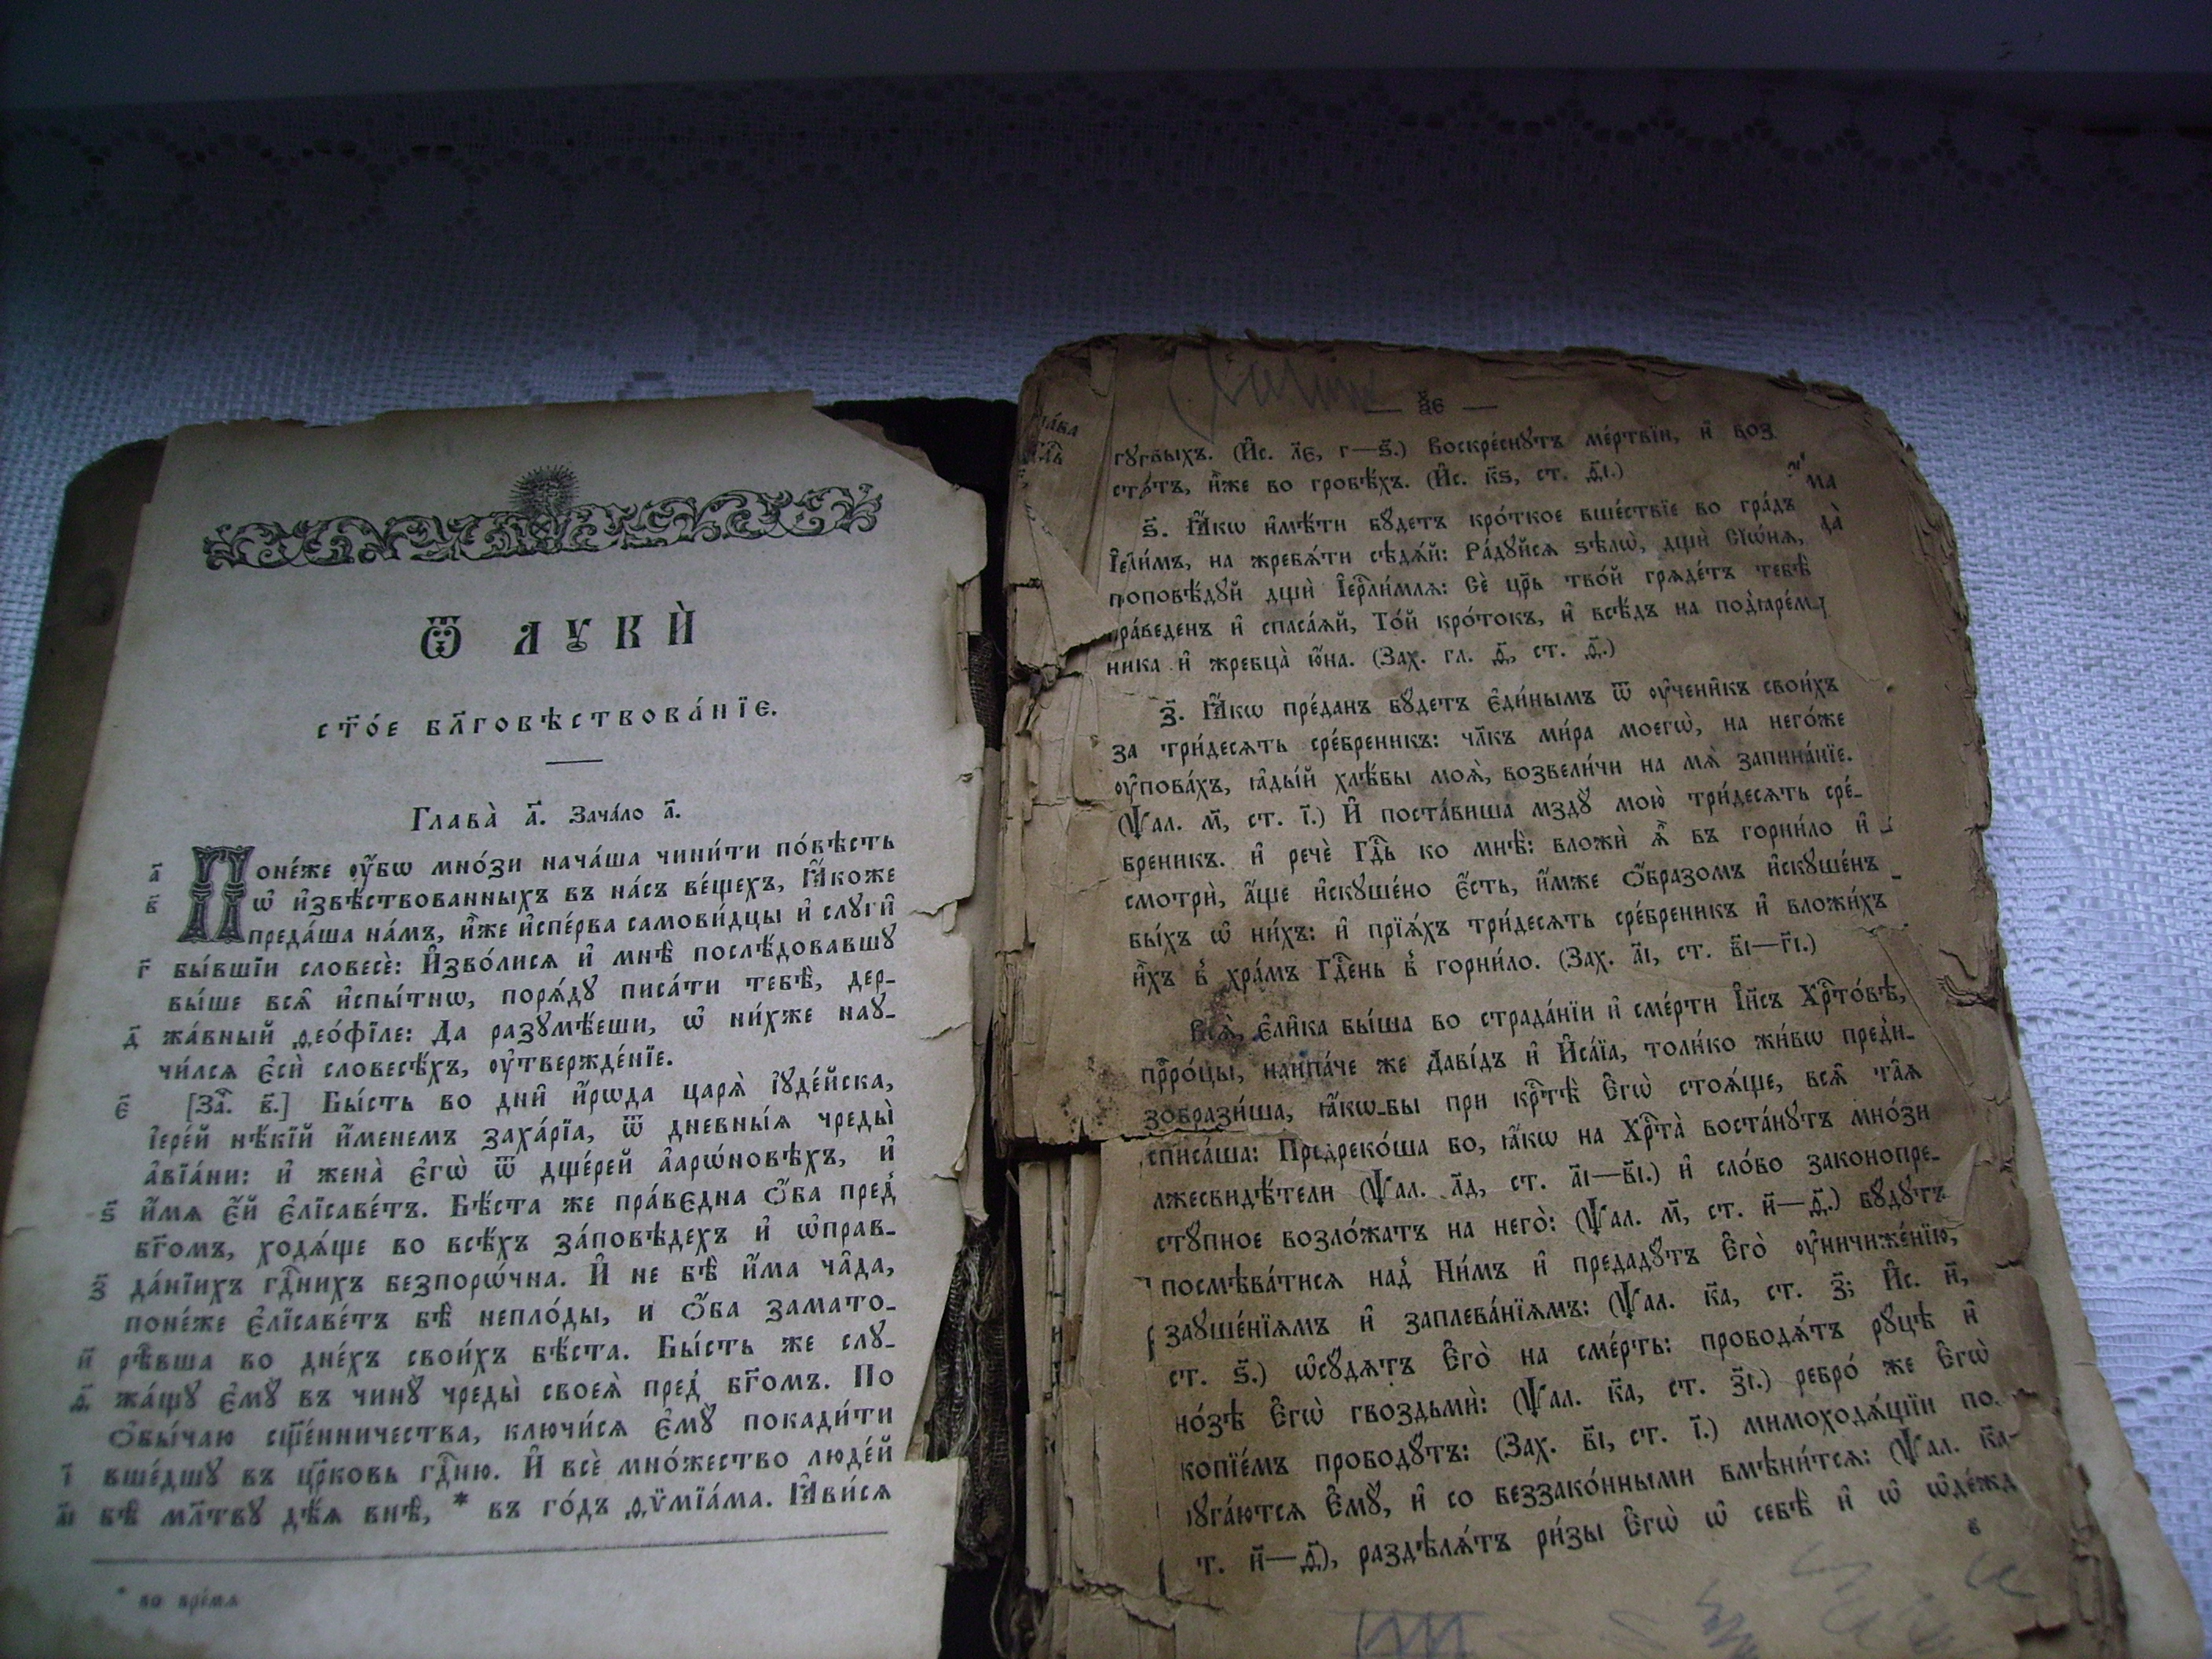 Ѿ ЛꙊКѝ
ст҃о́е бл҃говѣствова́нїе.
Глава̀ а҃. Зача́ло а҃.
а҃ Поне́же ᲂу҆́бѡ мно́зи нача́ша чини́ти по́вѣсть
в҃ ѡ҆ и҆звѣ́ствованныхъ въ на́съ ве́щехъ, Ꙗ҆́коже
преда́ша на́мъ, и҆̀же и҆спе́рва самови́дцы и҆ слꙋги̑
г҃ бы́вшїи словесѐ: И҆зво́лисѧ и҆ мнѣ̀ послѣ́довавшꙋ
вы́ше всѧ̑ и҆спы́тнѡ, порѧ́дꙋ писа́ти тебѣ̀, дер-
д҃ жа́вный ѳео́фїле: Да разꙋмѣ́еши, ѡ҆ ни́хже наꙋ-
чи́лсѧ є҆сѝ словесѣ́хъ, ᲂу҆твержде́нїе.
є҃ [За҃. в҃.] Бы́сть во дни̑ и҆́рѡда царѧ̀ і҆ꙋде́йска,
і҆ере́й нѣ́кїй и҆́менемъ заха́рїа, ѿ дневны́ѧ чреды̀
а҆вїа́ни: и҆ жена̀ є҆гѡ̀ ѿ дще́рей а҆арѡ́новѣхъ, и҆
ѕ҃ и҆́мѧ є҆́й є҆лїсаве́тъ. Бѣ́ста же пра́вєдна ѻ҆́ба пред̾
бг҃омъ, ходѧ́ще во всѣ́хъ за́повѣдехъ и҆ ѡ҆прав-
з҃ да́нїихъ гдⷭ҇нихъ безпорѡ́чна. И҆ не бѣ̀ и҆́ма ча̑да,
поне́же є҆лїсаве́тъ бѣ̀ непло́ды, и ѻ҆́ба замато-
и҃ рѣ̑вша во дне́хъ свои́хъ бѣ́ста. Бы́сть же слꙋ-
жа́щꙋ є҆мꙋ̀ въ чинꙋ̀ чреды̀ своеѧ̀ пред̾ бг҃омъ. По
ѳ҃ ѻ҆бы́чаю сщ҃е́нничества, ключи́сѧ є҆мꙋ̀ покади́ти
і҃ вше́дшꙋ въ цр҃ковь гдⷭ҇ню. И҆ всѐ мно́жество люде́й
бѣ̀ мл҃твꙋ дѣ́ѧ внѣ̀, * въ го́дъ ѳѷмїа́ма. Ꙗ҆ви́сѧ
а҃і
* во вре́мѧ
гꙋгвыхъ. (И҆с. л҃є, г—ѕ҃.) Воскре́снꙋтъ ме́ртвїи, и҆ воз
и҆̀же во гробѣ́хъ. (И҆с. к҃ѕ, ст. ѳ҃і.)
ѕ҃. Ꙗ҆́кѡ и҆мѣ́ти бꙋ́детъ кро́ткое вше́ствїе во гра́дъ
І҆ел҃и́мъ, на жребѧ́ти сѣдѧ́й: Ра́дꙋйсѧ ѕѣлѡ̀, дщѝ Сїѡ́нѧ,
поповѣ́дꙋй дщѝ І҆ерⷭ҇ли́млѧ: Сѐ цр҃ь тво́й грѧде́тъ тебѣ̀
ра́веденъ и҆ спаса́ѧй, То́й кро́токъ, и҆ всѣ́дъ на под̾ꙗре́м
ника и҆ жребца̀ ю҆́на. (Зах. гл. ѳ҃, ст. ѳ҃.)
з҃. Ꙗ҆́кѡ пре́данъ бꙋ́детъ є҆ди́нымъ ѿ ᲂу҆чени̑къ свои́хъ
за три́десѧть сре́бреникъ: чл҃къ ми́ра моегѡ̀, на него́же
ᲂу҆пова́хъ, ꙗ҆ды́й хлѣ́бы моѧ̀, возвели́чи на мѧ̀ запина́нїе.
(Ѱал. м҃, ст. і҃.) И҆ поста́виша мздꙋ̀ мою̀ три́десѧть сре́-
бреникъ. и҆ речѐ Гдⷭ҇ь ко мнѣ̀: вложѝ ѧ҆̀ въ горни́ло и҆
смотрѝ, а҆́ще и҆скꙋше́но є҆́сть, и҆́мже ѻ҆́бразомъ и҆скꙋше́нъ
бы́хъ ѡ҆ ни́хъ: и҆ прїѧ́хъ три́десѧть сре́бреникъ и҆ вложи́хъ
и҆̀хъ в̾ хра́мъ Гдⷭ҇ень в̾ горни́ло. (Зах. а҃і, ст. в҃і—г҃і.)
Всѧ̑, є҆ли̑ка бы́ша во страда́нїи и҆ сме́рти І҆и҃съ Хрⷭ҇то́вѣ,
прⷪ҇ро́цы, наипа́че же Даві́дъ и҆ И҆са́їа, толи́ко жи́вѡ пред̾и-
зобрази́ша, ꙗ҆́кѡ-бы при крⷭ҇тѣ̀ Є҆гѡ̀ стоѧ́ще, всѧ̑ та̑ѧ
списа́ша: Предреко́ша бо, ꙗ҆́кѡ на Хрⷭ҇та̀ воста́нꙋтъ мно́зи
лжесвидѣ́тели (Ѱал. л҃д, ст. а҃і—в҃і.) и҆ сло́во законопре-
стꙋпное возло́жатъ на него̀: (Ѱал. м҃, ст. и҃—ѳ҃.) бꙋ́дꙋтъ
посмѣва́тисѧ над̾ Ни́мъ и҆ предадꙋ́тъ Є҆го̀ ᲂу҆ничиже́нїю,
заꙋше́нїѧмъ и҆ заплева́нїѧмъ: (Ѱал. к҃а, ст. з҃; И҆с. н҃,
ст. ѕ҃.) ѡ҆сꙋ́дѧтъ Є҆го̀ на сме́рть: прободѧ́тъ рꙋцѣ и҆
но́зѣ Є҆гѡ̀ гвоздьмѝ: (Ѱал. к҃а, ст. з҃і.) ребро́ же Є҆гѡ̀
копїе́мъ прободꙋ́тъ: (Зах. в҃і, ст. і҃.) мимоходѧ́щїи по-
ꙋга́ютсѧ Є҆мꙋ̀, и҆ со беззако́нными вмѣни́тсѧ: (Ѱал. к҃а-
т. и҃—ѳ҃), раздѣлѧ́тъ ри́зы Є҆гѡ̀ ѡ҆ себѣ̀ и҆ ѡ҆ ѡ҆де́жд